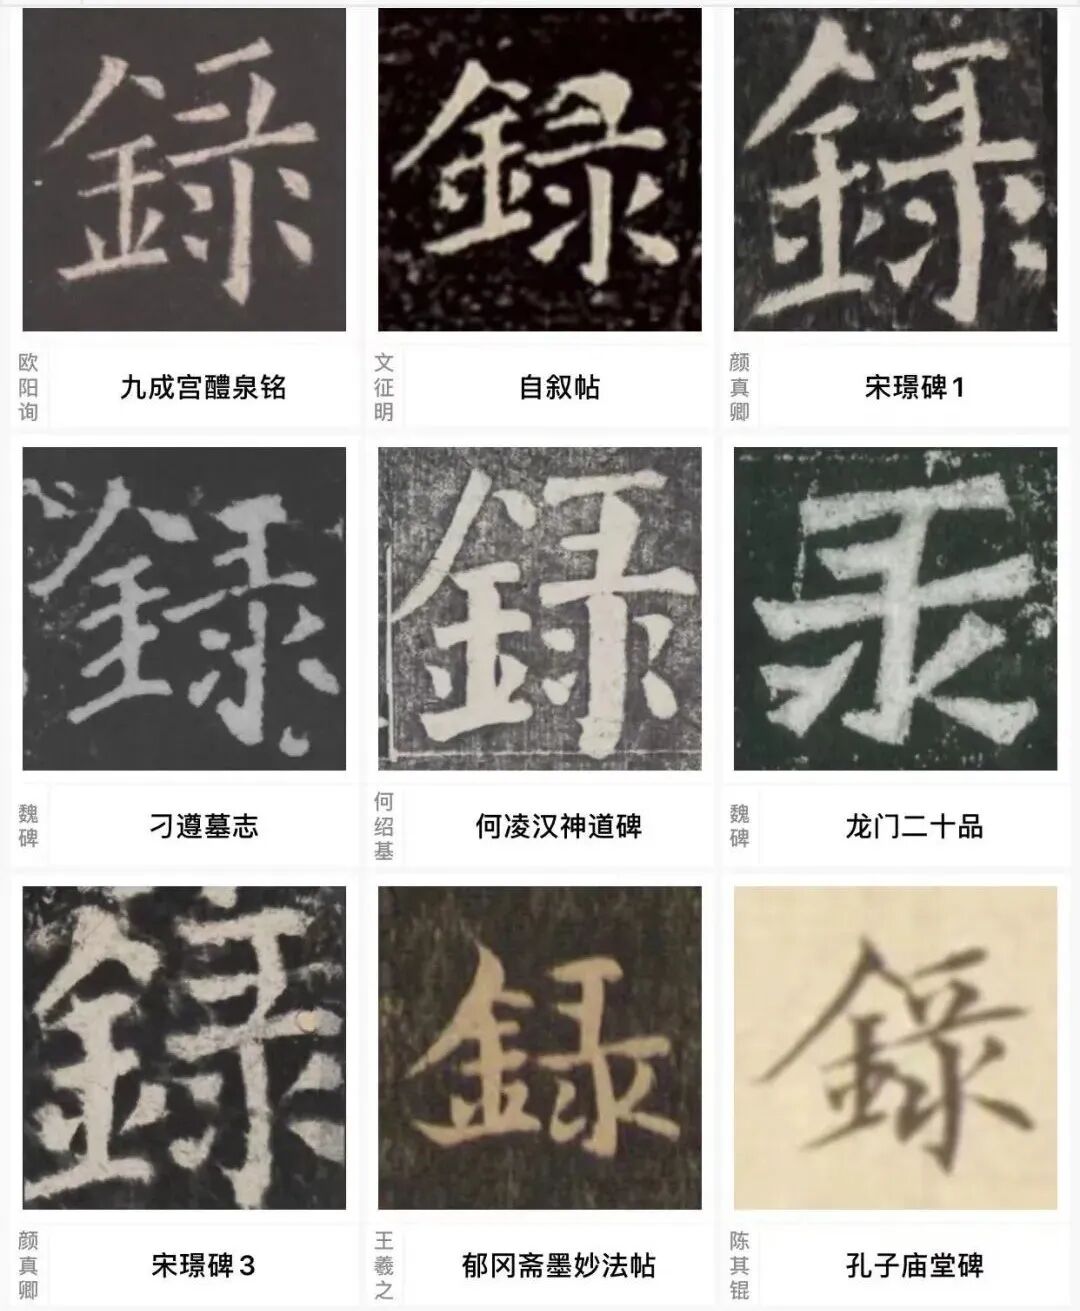 錄 錄 錄
欧阳询 九成宫醴泉铭
文征明 自叙帖
颜真卿 宋璟碑1
錄 錄 录
魏碑 刁遵墓志
何绍基 何凌汉神道碑
魏碑 龙门二十品
錄 錄 錄
颜真卿 宋璟碑3
王羲之 郁冈斋墨妙法帖
陈其锟 孔子庙堂碑